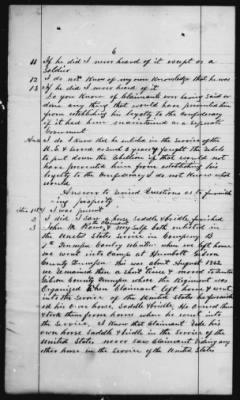 6
11 If he did I never heard of it except as a
Soldier
12 I do not know of my own knowledge that he was
13 If he did I never heard of it
Do you know of Claimants ever having said or
done any thing that would have prevented him
from establishing his loyalty to the Confederacy
if it had been maintained as a separate
Government
Ans I do know that he enlisted in the service of the
U.S. & served as such & proved to the rebels
to put down the Rebellion if that would not
have prevented him from establishing his
loyalty to the Confederacy I do not know what
would
Answer to several Questions as to furnish-
ing property
Ans 1st I was present
2 I did I saw a horse saddle & bridle furnished
3 John M. and my self both enlisted in
the United States service in Company
1st Tennessee Cavalry when we left home
we went into Camp at Humboldt Gibson
County Tennessee this was about August 1862
we remained there a short time & moved to Trenton
Gibson County Tennessee where the Regiment was
Organized when Claimant left home & went
into the service of the United States he furnish-
ed his own horse, Saddle & bridle, He owned them
& took them from home when he went into
the service, I know that Claimant rode his
own horse saddle & bridle in the service of the
United States never saw Claimant riding any
other horse in the service of the United States